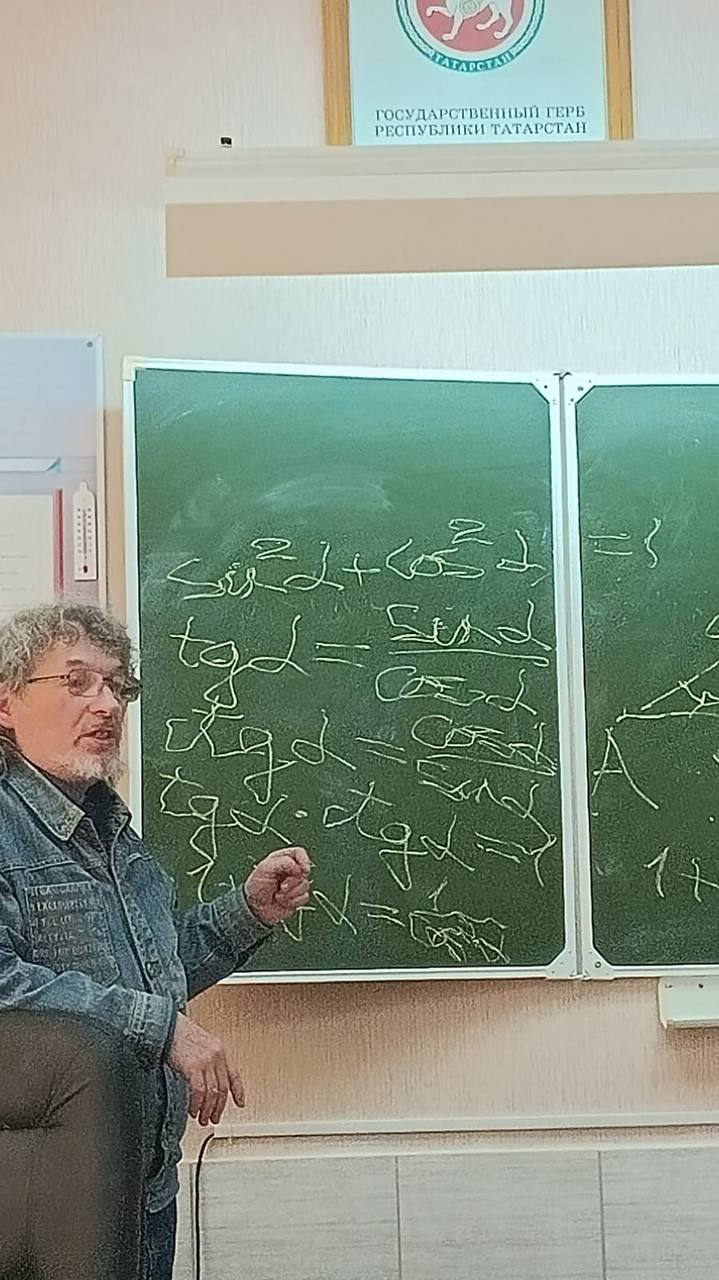 ТАТАРСТАН
ГОСУДАРСТВЕННЫЙ ГЕРБ
РЕСПУБЛИКИ ТАТАРСТАН
sin²α + cos²α = 1
tgα = sinα / cosα
ctgα = cosα / sinα
tgα · ctgα = 1
A
1 +